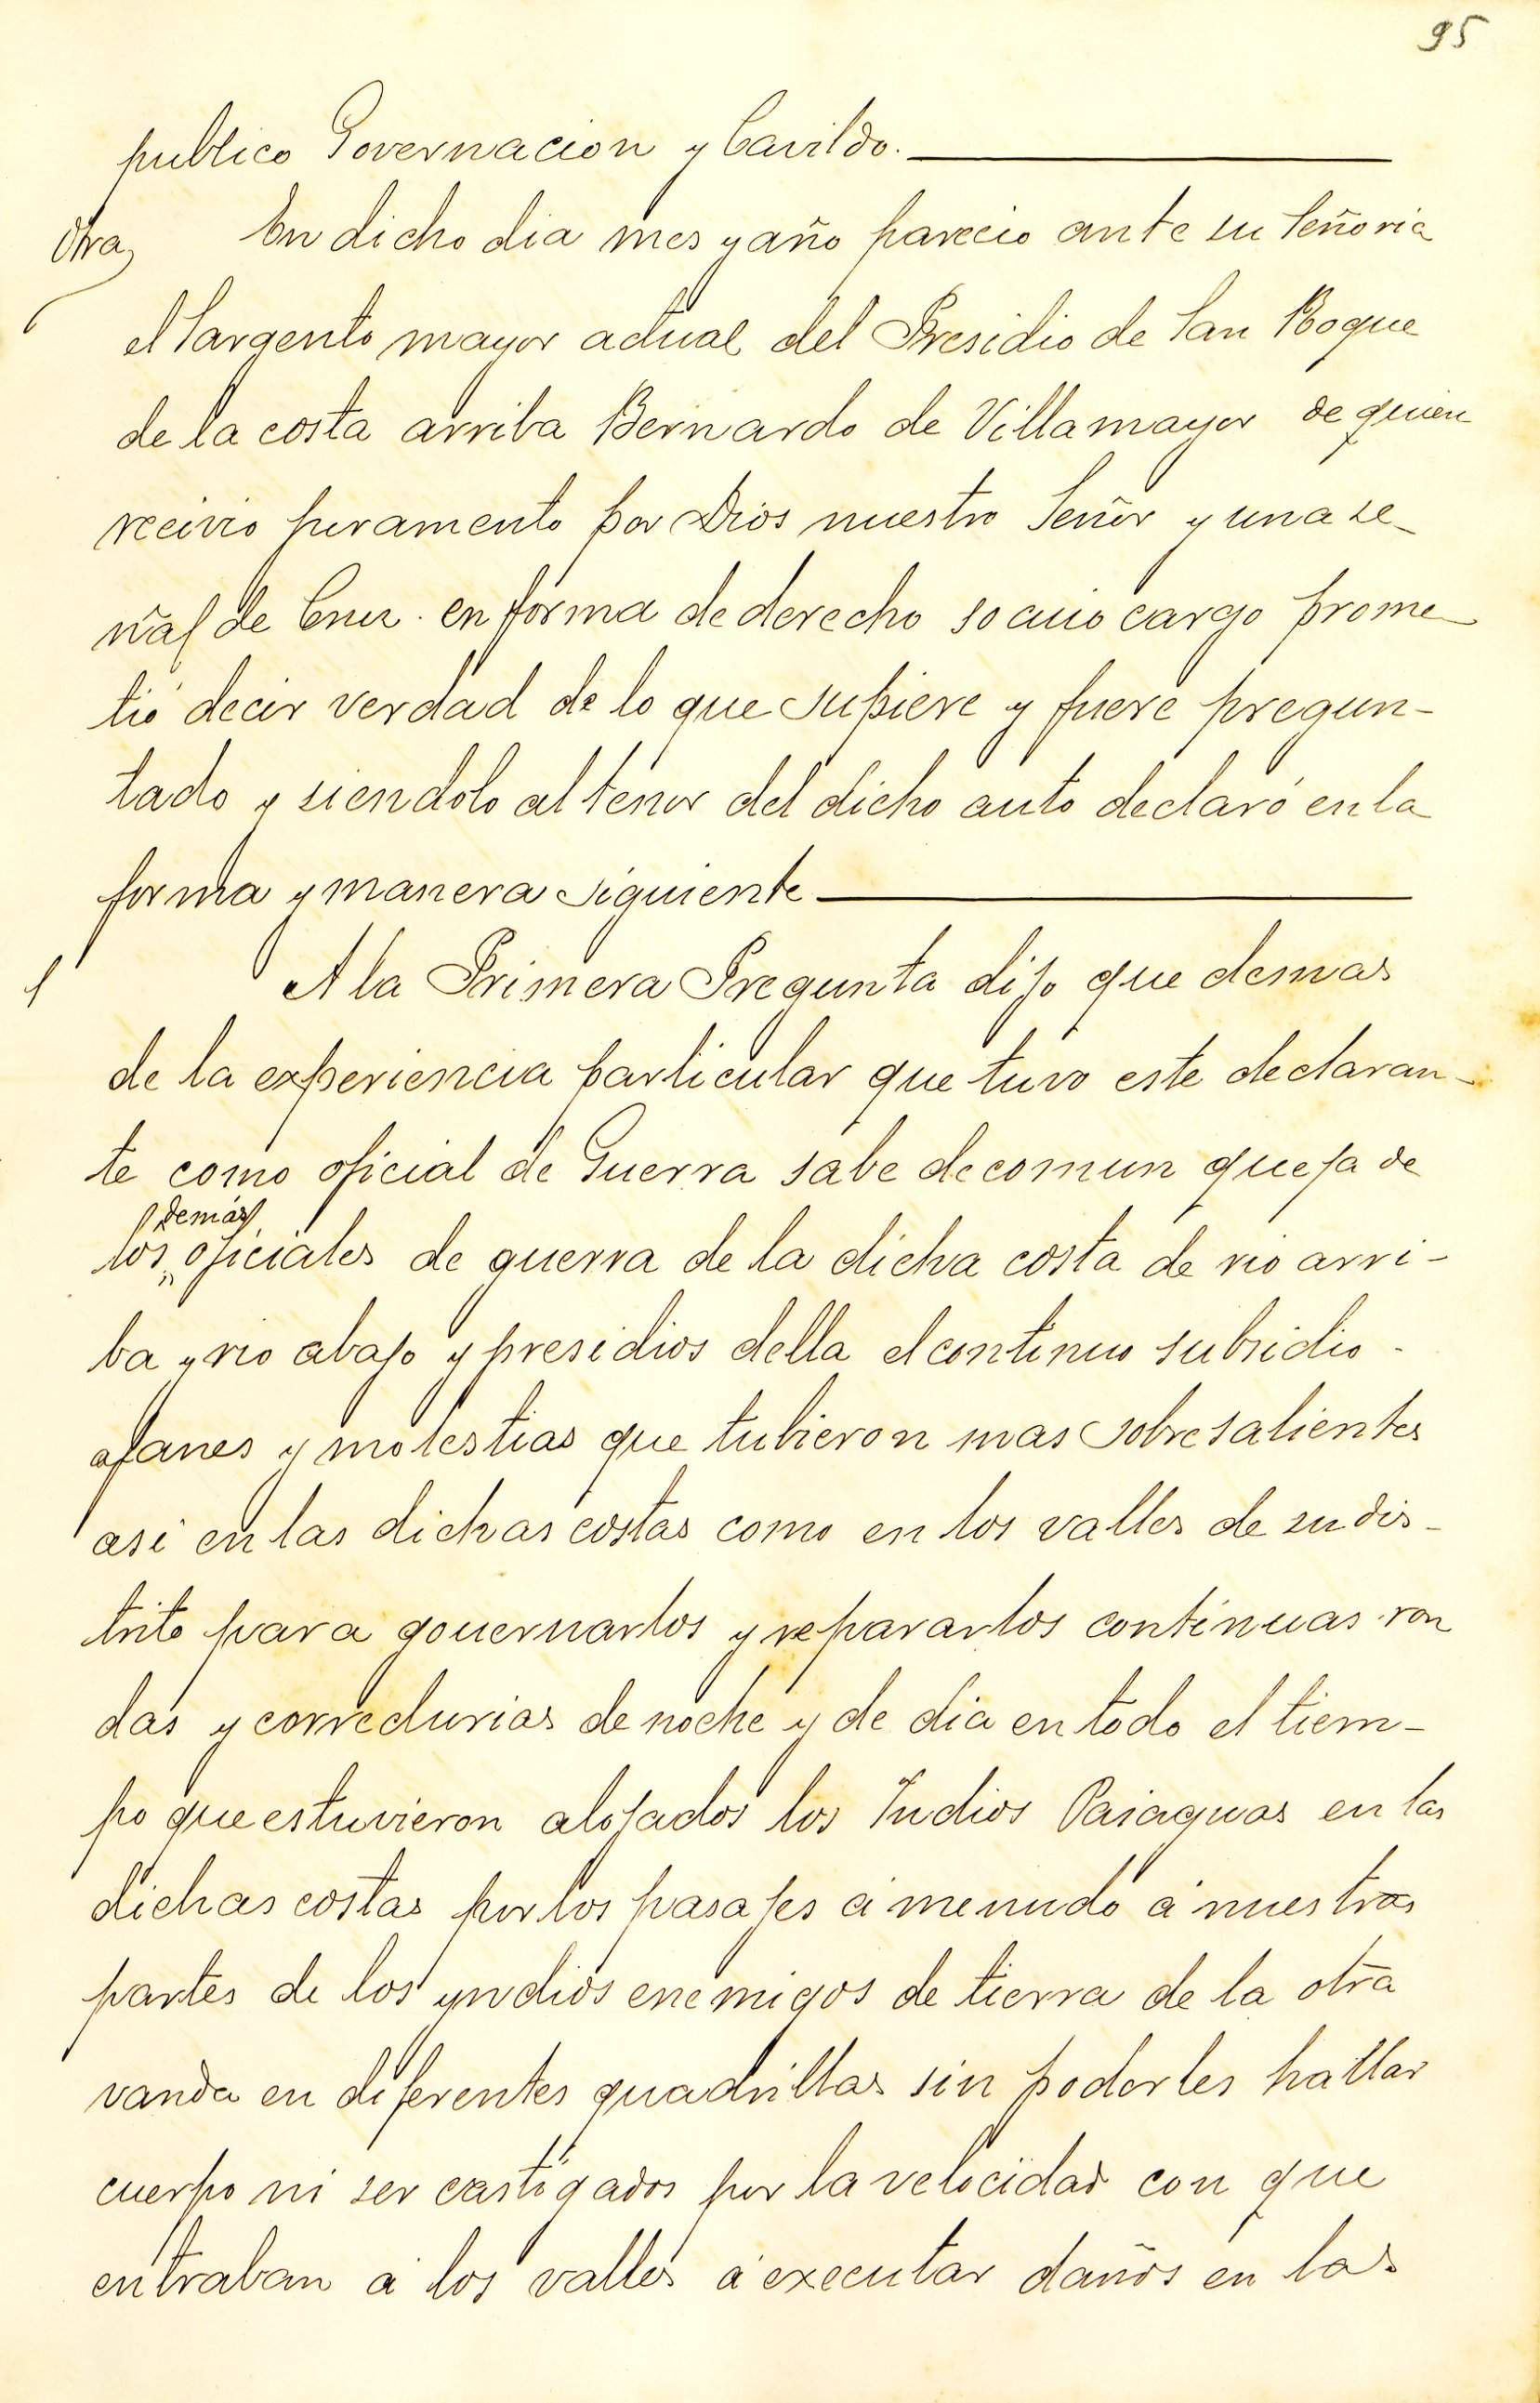 95
publico Governacion y Cavildo.
Otra
En dicho dia mes y año parecio ante su Señoria
el Sargento mayor actual del Presidio de San Roque
de la costa arriba Bernardo de Villamayor de quien
recivio juramento por Dios nuestro Señor y una se-
ñal de Cruz. en forma de derecho so cuio cargo prome-
tió decir verdad de lo que supiere y fuere pregun-
tado y siendolo al tenor del dicho auto declaró en la
forma y manera siguiente
1
A la Primera Pregunta dijo que demas
de la experiencia particular que tuvo este declaran-
te como oficial de Guerra sabe de comun queja de
demás
los oficiales de guerra de la dicha costa de rio arri-
ba y rio abajo y presidios della el continuo subsidio -
afanes y molestias que tubieron mas sobresalientes
asi en las dichas costas como en los valles de su dis-
trito para gouernarlos y repararlos continuas ron
das y corredurias de noche y de dia en todo el tiem-
po que estuvieron alojados los Indios Paiaguas en las
dichas costas por los pasajes á menudo á nuestras
partes de los yndios enemigos de tierra de la otra
vanda en diferentes quadrillas sin poderles hallar
cuerpo ni ser castigados por la velocidad con que
entraban á los valles á executar daños en las